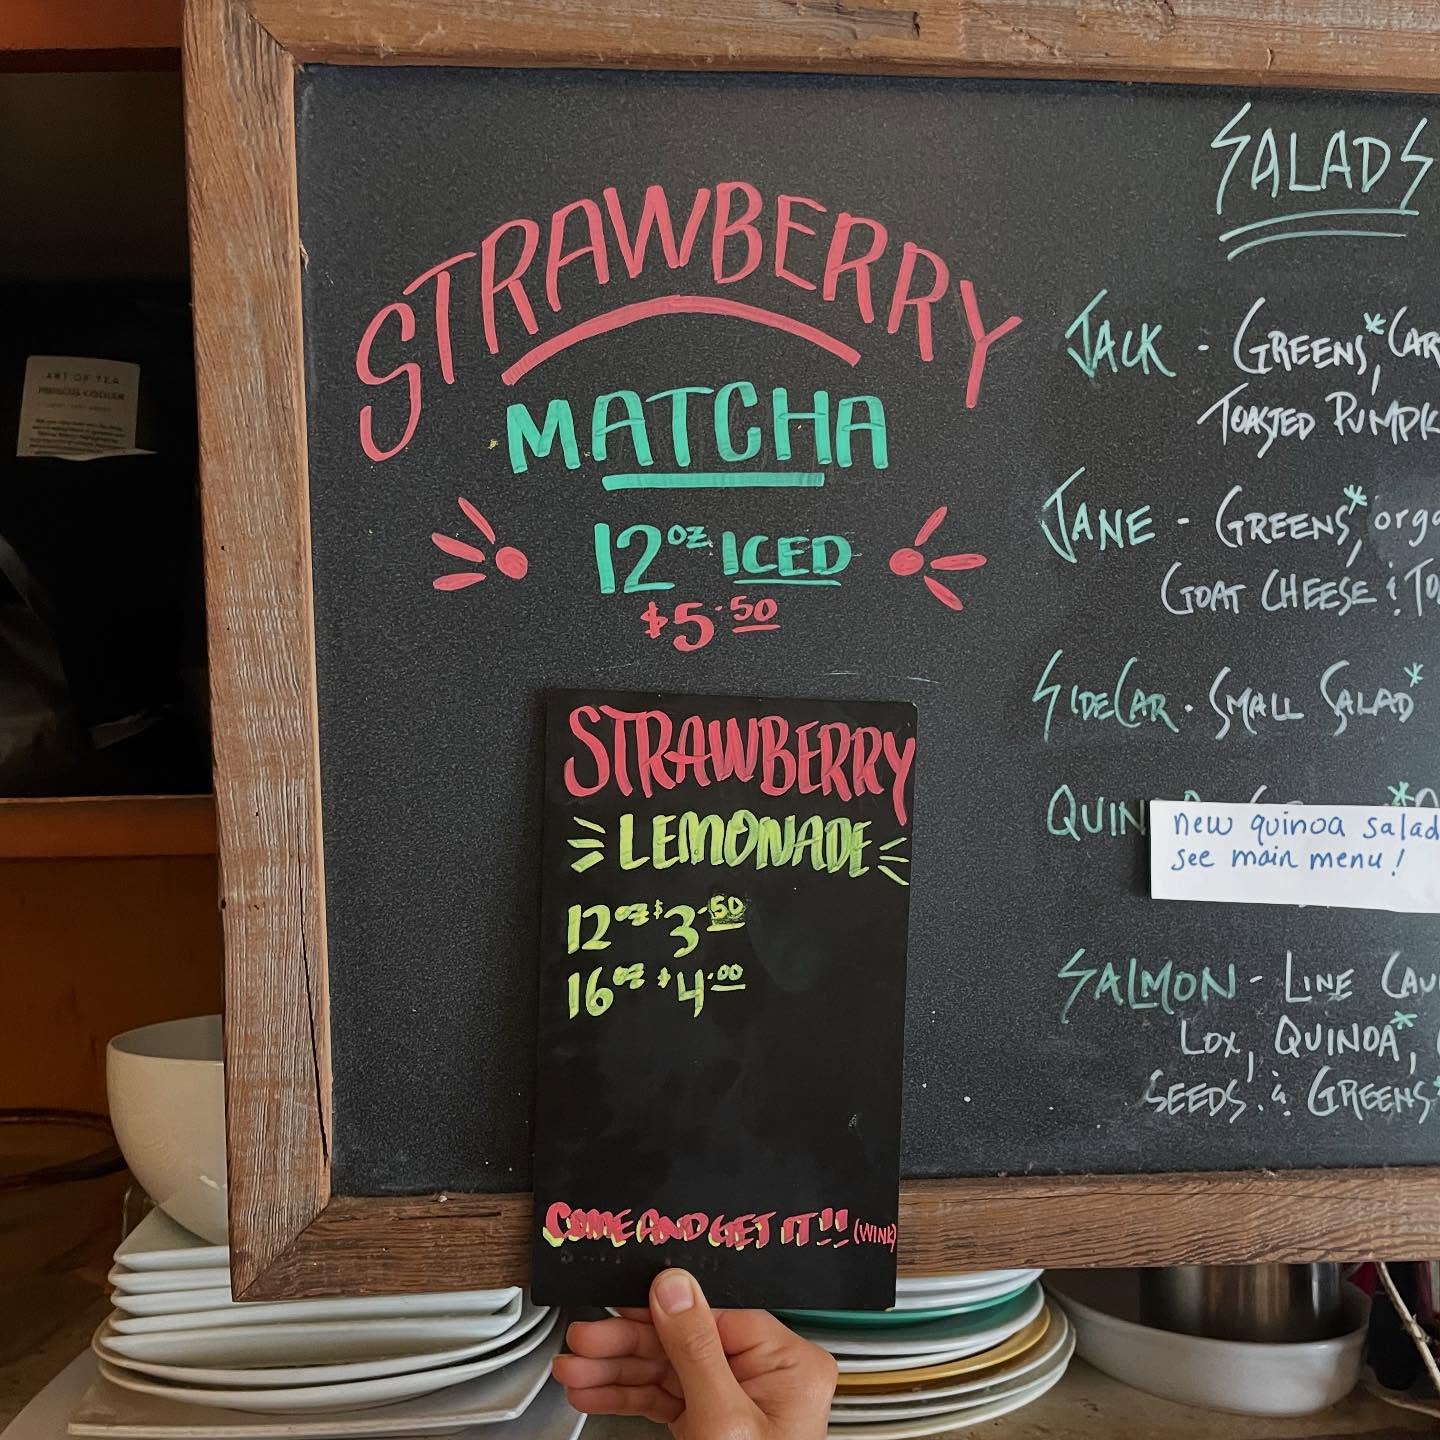 STRAWBERRY
MATCHA
12oz ICED
$5.50
STRAWBERRY
LEMONADE
12oz $3.50
16oz $4.00
COME AND GET IT!! (WINK)
SALADS
JACK - GREENS*, CAR
TOASTED PUMPK
JANE - GREENS*, orga
GOAT CHEESE & TO
SIDECAR - SMALL SALAD*
QUIN
new quinoa salad
see main menu!
SALMON - LINE CAU
LOX, QUINOA*,
SEEDS & GREENS*
ART OF TEA
HIBISCUS COOLER